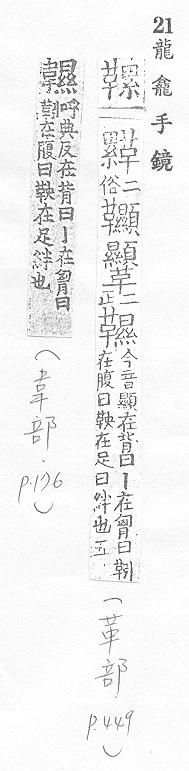 21 龍龕手鏡
二俗
二正
今音顯在背曰丨在胷曰靷
在腹曰鞅在足曰絆也五
（革部．p.449）
呼典反在背曰丨在胷曰
靷在腹曰鞅在足絆也
（韋部．p.196）